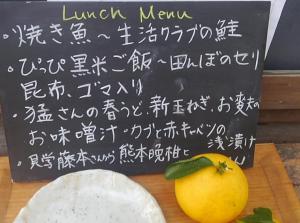 Lunch Menu
・焼き魚〜生活クラブの鮭
・ぴっぴ黒米ご飯〜田んぼのセリ
昆布、ゴマ入り
・猛さんの春うど、新玉ねぎ、お麦丸
のお味噌汁・カブと赤キャベツの
浅漬け
・見学藤本さんから熊本晩柑と